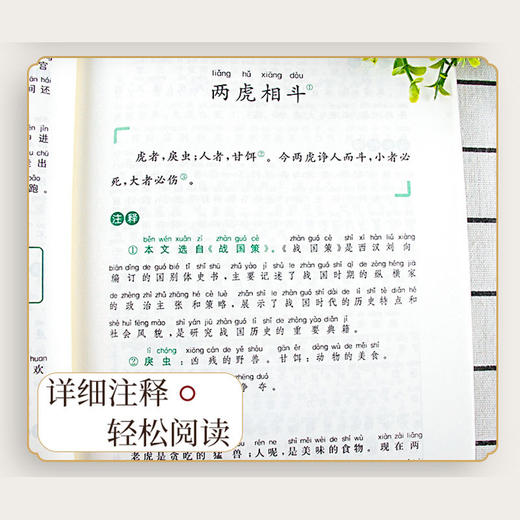 宫
nán hái
间 还
jìn
中 进
chū
出
pǎo
跑。
huan
欢
liǎng hǔ xiāng dòu
两虎相斗①
虎者，戾虫；人者，甘饵②。今两虎诤人而斗，小者必
死，大者必伤③。
注释
běn wén xuǎn zì zhàn guó cè zhàn guó cè shì xī hàn liú xiàng
① 本文选自《战国策》。《战国策》是西汉刘向
biān dìng de guó bié tǐ shǐ shū zhǔ yào jì shù le zhàn guó shí qī de zòng héng jiā
编订的国别体史书，主要记述了战国时期的纵横家
de zhèng zhì zhǔ zhāng hé cè lüè zhǎn shì le zhàn guó shí dài de lì shǐ tè diǎn hé
的政治主张和策略，展示了战国时代的历史特点和
shè huì fēng mào shì yán jiū zhàn guó lì shǐ de zhòng yào diǎn jí
社会风貌，是研究战国历史的重要典籍。
lì chóng xiōng cán de yě shòu gān ěr dòng wù de měi shí
② 戾虫：凶残的野兽。甘饵：动物的美食。
zhēng duó
争夺。
rén ne shì měi wèi de shí wù xiàn zài liǎng
老虎是贪吃的猛兽；人呢，是美味的食物。现在两
详细注释
轻松阅读